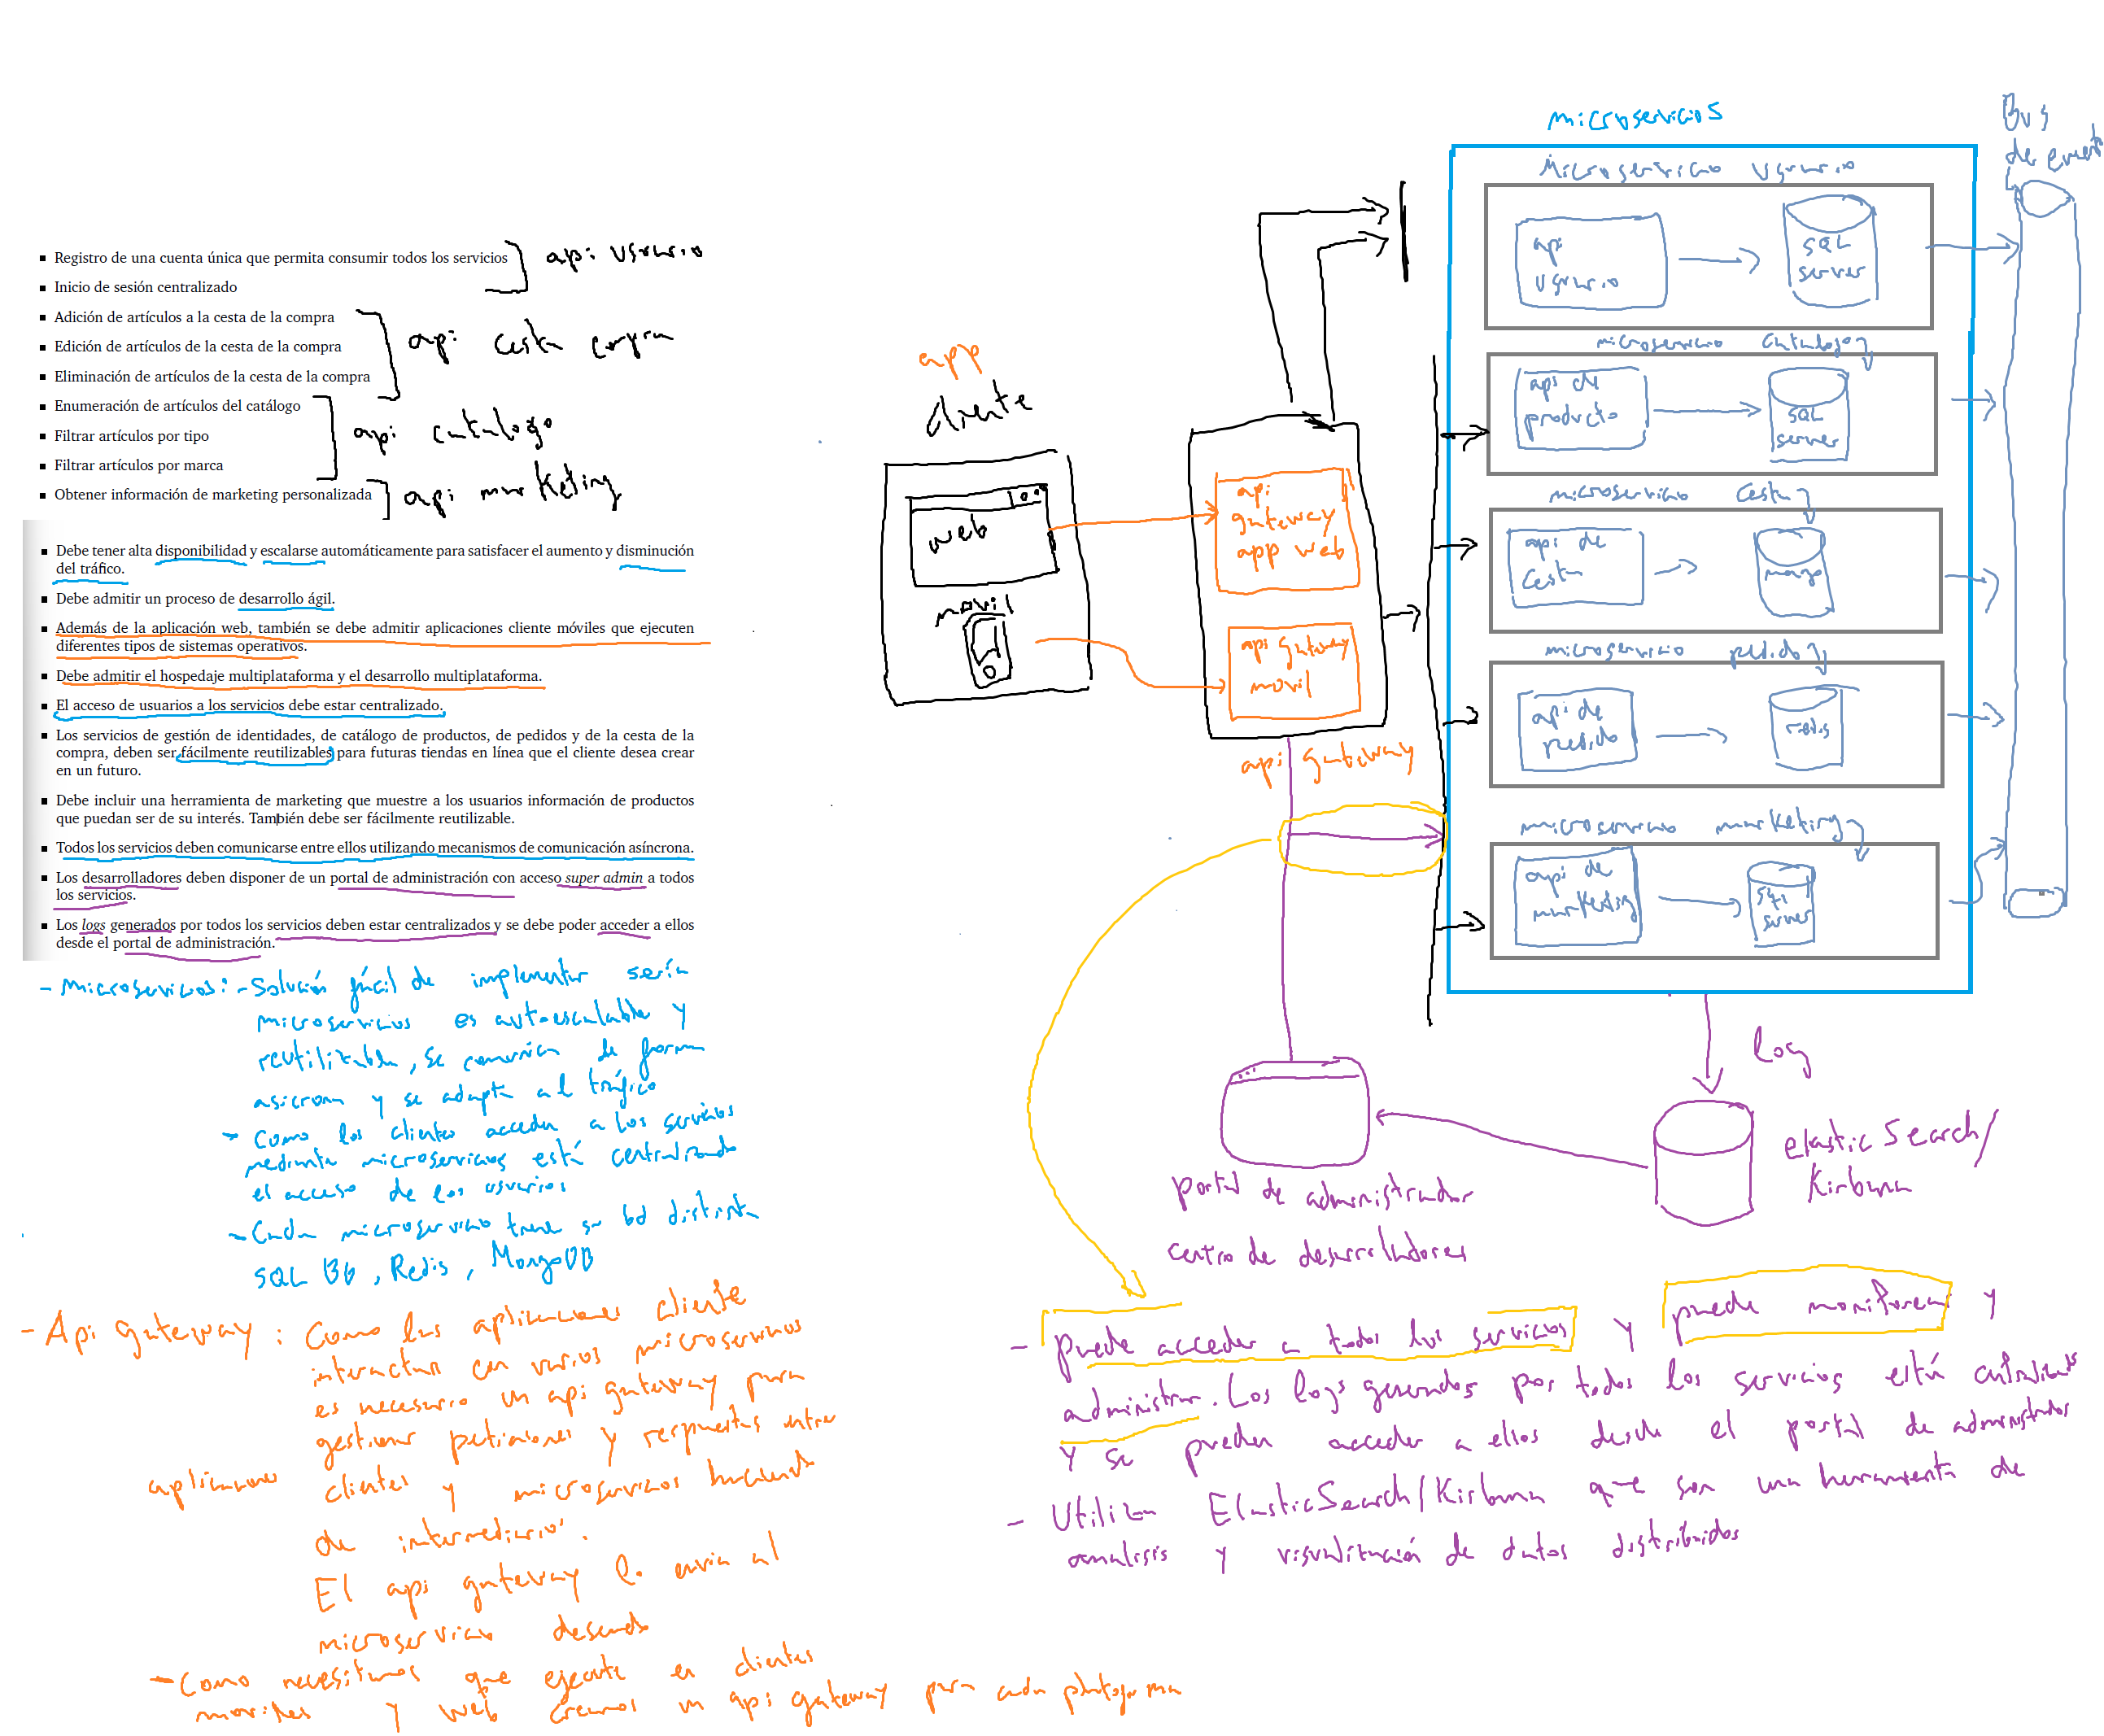 Registro de una cuenta única que permita consumir todos los servicios
Inicio de sesión centralizado
api usuario
Adición de artículos a la cesta de la compra
Edición de artículos de la cesta de la compra
Eliminación de artículos de la cesta de la compra
api cesta compra
Enumeración de artículos del catálogo
Filtrar artículos por tipo
Filtrar artículos por marca
api catalogo
Obtener información de marketing personalizada
api marketing
Debe tener alta disponibilidad y escalarse automáticamente para satisfacer el aumento y disminución
del tráfico.
Debe admitir un proceso de desarrollo ágil.
Además de la aplicación web, también se debe admitir aplicaciones cliente móviles que ejecuten
diferentes tipos de sistemas operativos.
Debe admitir el hospedaje multiplataforma y el desarrollo multiplataforma.
El acceso de usuarios a los servicios debe estar centralizado.
Los servicios de gestión de identidades, de catálogo de productos, de pedidos y de la cesta de la
compra, deben ser fácilmente reutilizables para futuras tiendas en línea que el cliente desea crear
en un futuro.
Debe incluir una herramienta de marketing que muestre a los usuarios información de productos
que puedan ser de su interés. También debe ser fácilmente reutilizable.
Todos los servicios deben comunicarse entre ellos utilizando mecanismos de comunicación asíncrona.
Los desarrolladores deben disponer de un portal de administración con acceso super admin a todos
los servicios.
Los logs generados por todos los servicios deben estar centralizados y se debe poder acceder a ellos
desde el portal de administración.
- Microservicios: - Solución fácil de implementar sería
microservicios es autoescalable y
reutilizable, se comunica de forma
asicrona y se adapta al tráfico
- Como los clientes acceden a los servicios
mediante microservicios está centralizado
el acceso de los usuarios
- Cada microservicio tiene su bd distinta
SQL Bb, Redis, MongoDB
- Api gateway : Como las aplicaciones cliente
interactuan con varios microservicios
es necesario un api gateway para
gestionar peticiones y respuestas entre
aplicaciones clientes y microservicios haciendo
de intermediario.
El api gateway lo envia al
microservicio deseado
- Como necesitamos que ejecute en clientes
moviles y web creamos un api gateway para cada plataforma
app
cliente
web
movil
api
gateway
app web
api gateway
movil
api gateway
microservicios
Microservicio usuario
api
usuario
SQL
server
microservicio catalogo
api de
producto
SQL
server
microservicio cesta
api de
cesta
mongo
microservicio pedido
api de
pedido
redis
microservicio marketing
api de
marketing
sql
server
Bus
de event
log
elastic Search/
Kirbana
portal de administrador
centro de desarrolladores
- puede acceder a todos los servicios y puede monitorear y
administrar. Los logs generados por todos los servicios está centralizados
y se pueden acceder a ellos desde el portal de administrador
- Utiliza ElasticSearch/Kirbana que son una herramienta de
analisis y visualización de datos distribuidos